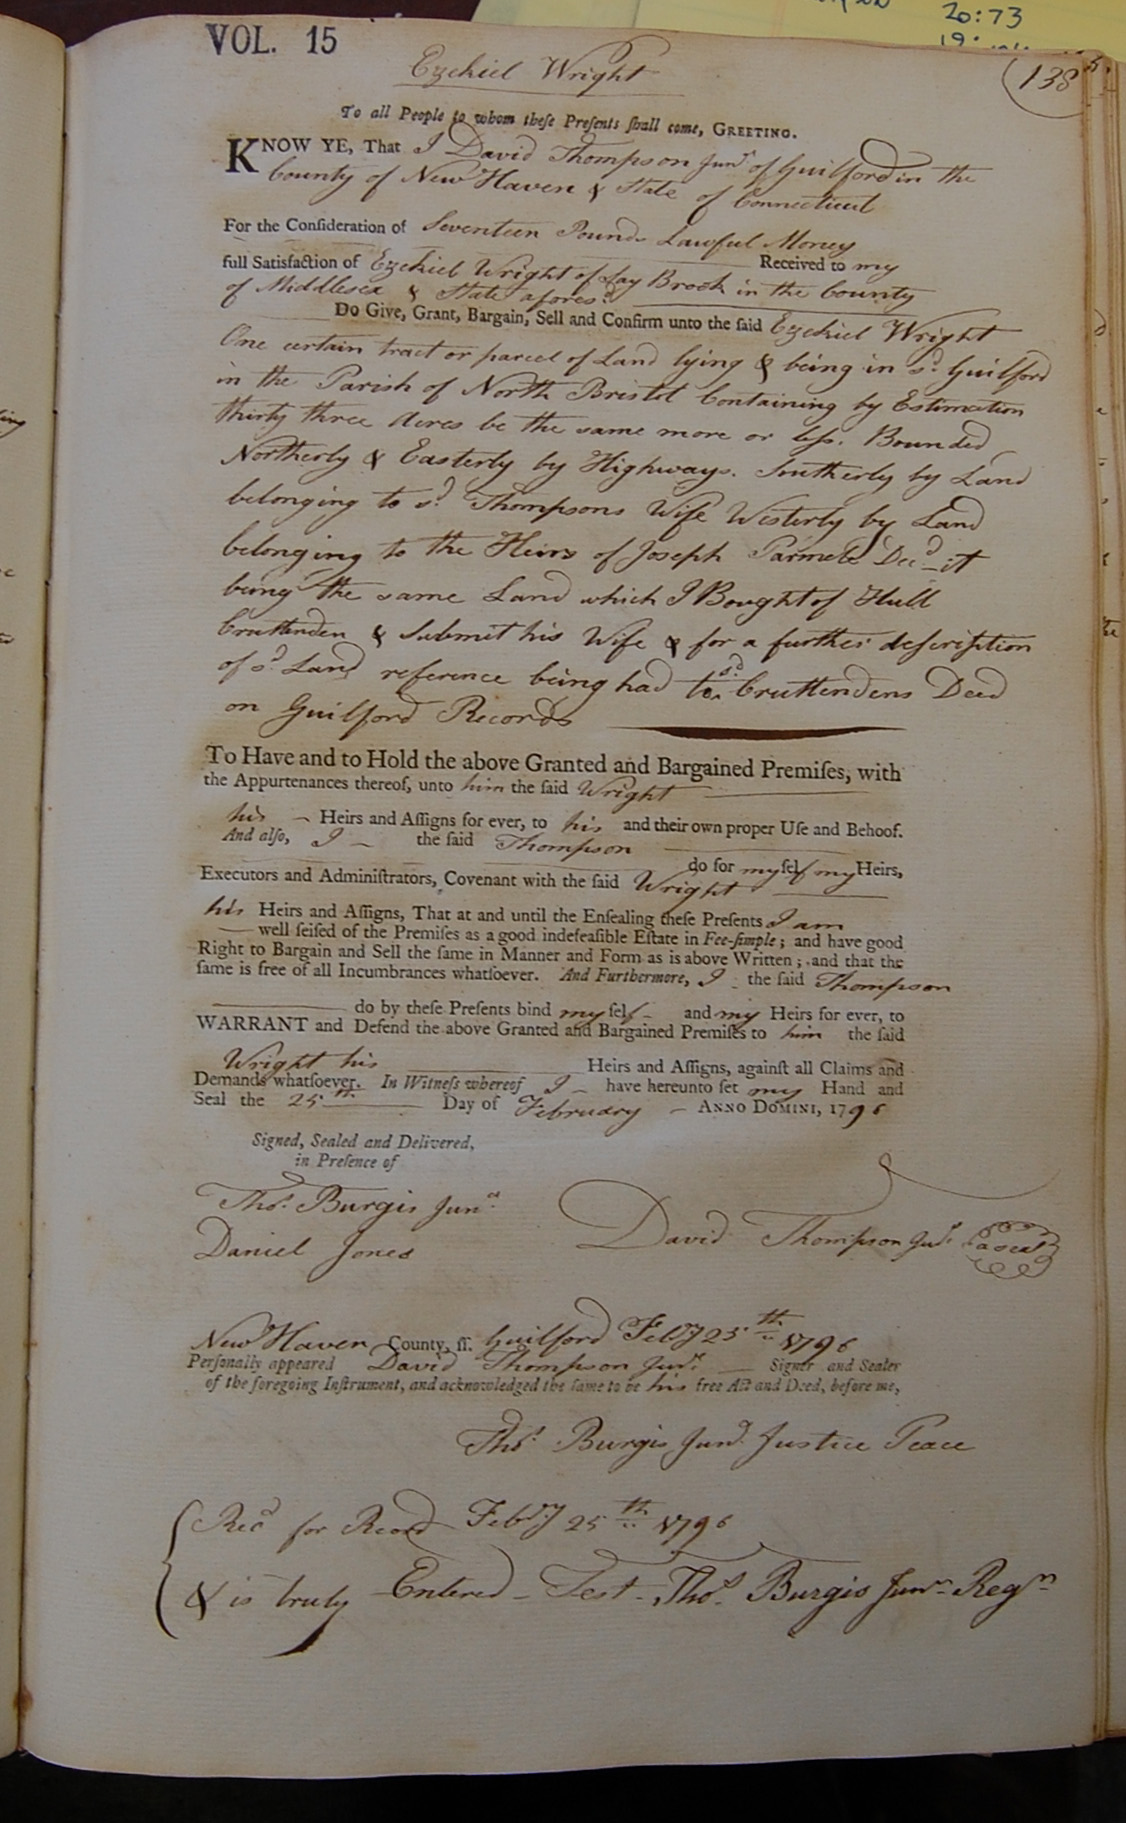 20:73
VOL. 15
138
Ezekiel Wright
To all People to whom theſe Preſents ſhall come, GREETING.
KNOW YE, That I David Thompson Junr of Guilford in the
County of New Haven & State of Connecticut
For the Conſideration of Seventeen Pounds Lawful Money
Received to my
full Satisfaction of Ezekiel Wright of Say Brook in the County
of Middlesex & State aforesd
Do Give, Grant, Bargain, Sell and Confirm unto the ſaid Ezekiel Wright
One certain tract or parcel of Land lying & being in sd. Guilford
in the Parish of North Bristol Containing by Estimation
thirty three Acres be the same more or leſs. Bounded
Northerly & Easterly by Highways. Southerly by Land
belonging to sd. Thompsons Wife Westerly by Land
belonging to the Heirs of Joseph Parmele Decd it
being the same Land which I Bought of Hull
Cruttenden & Submit his Wife & for a further deſcription
of sd. Land reference being had to sd. Cruttendens Deed
on Guilford Records
To Have and to Hold the above Granted and Bargained Premiſes, with
the Appurtenances thereof, unto him the ſaid Wright
his Heirs and Aſſigns for ever, to his and their own proper Uſe and Behoof.
And alſo, I the ſaid Thompson
do for my ſelf my Heirs,
Executors and Adminiſtrators, Covenant with the ſaid Wright
his Heirs and Aſſigns, That at and until the Enſealing theſe Preſents I am
well ſeiſed of the Premiſes as a good indefeaſible Eſtate in Fee-ſimple; and have good
Right to Bargain and Sell the ſame in Manner and Form as is above Written; and that the
ſame is free of all Incumbrances whatſoever. And Furthermore, I the ſaid Thompson
do by theſe Preſents bind my ſelf and my Heirs for ever, to
WARRANT and Defend the above Granted and Bargained Premiſes to him the ſaid
Wright his Heirs and Aſſigns, againſt all Claims and
Demands whatſoever. In Witneſs whereof I have hereunto ſet my Hand and
Seal the 25th Day of February ANNO DOMINI, 1796
Signed, Sealed and Delivered,
in Preſence of
Thos. Burgis Junr.
Daniel Jones
David Thompson Junr a seal
New Haven County, ſſ. Guilford Feby 25th 1796
Perſonally appeared David Thompson Junr. Signer and Sealer
of the foregoing Inſtrument, and acknowledged the ſame to be his free Act and Deed, before me,
Thos. Burgis Junr. Justice Peace
Recd for Record Febry 25th 1796
& is truly Entered - Test - Thos. Burgis Junr Regr